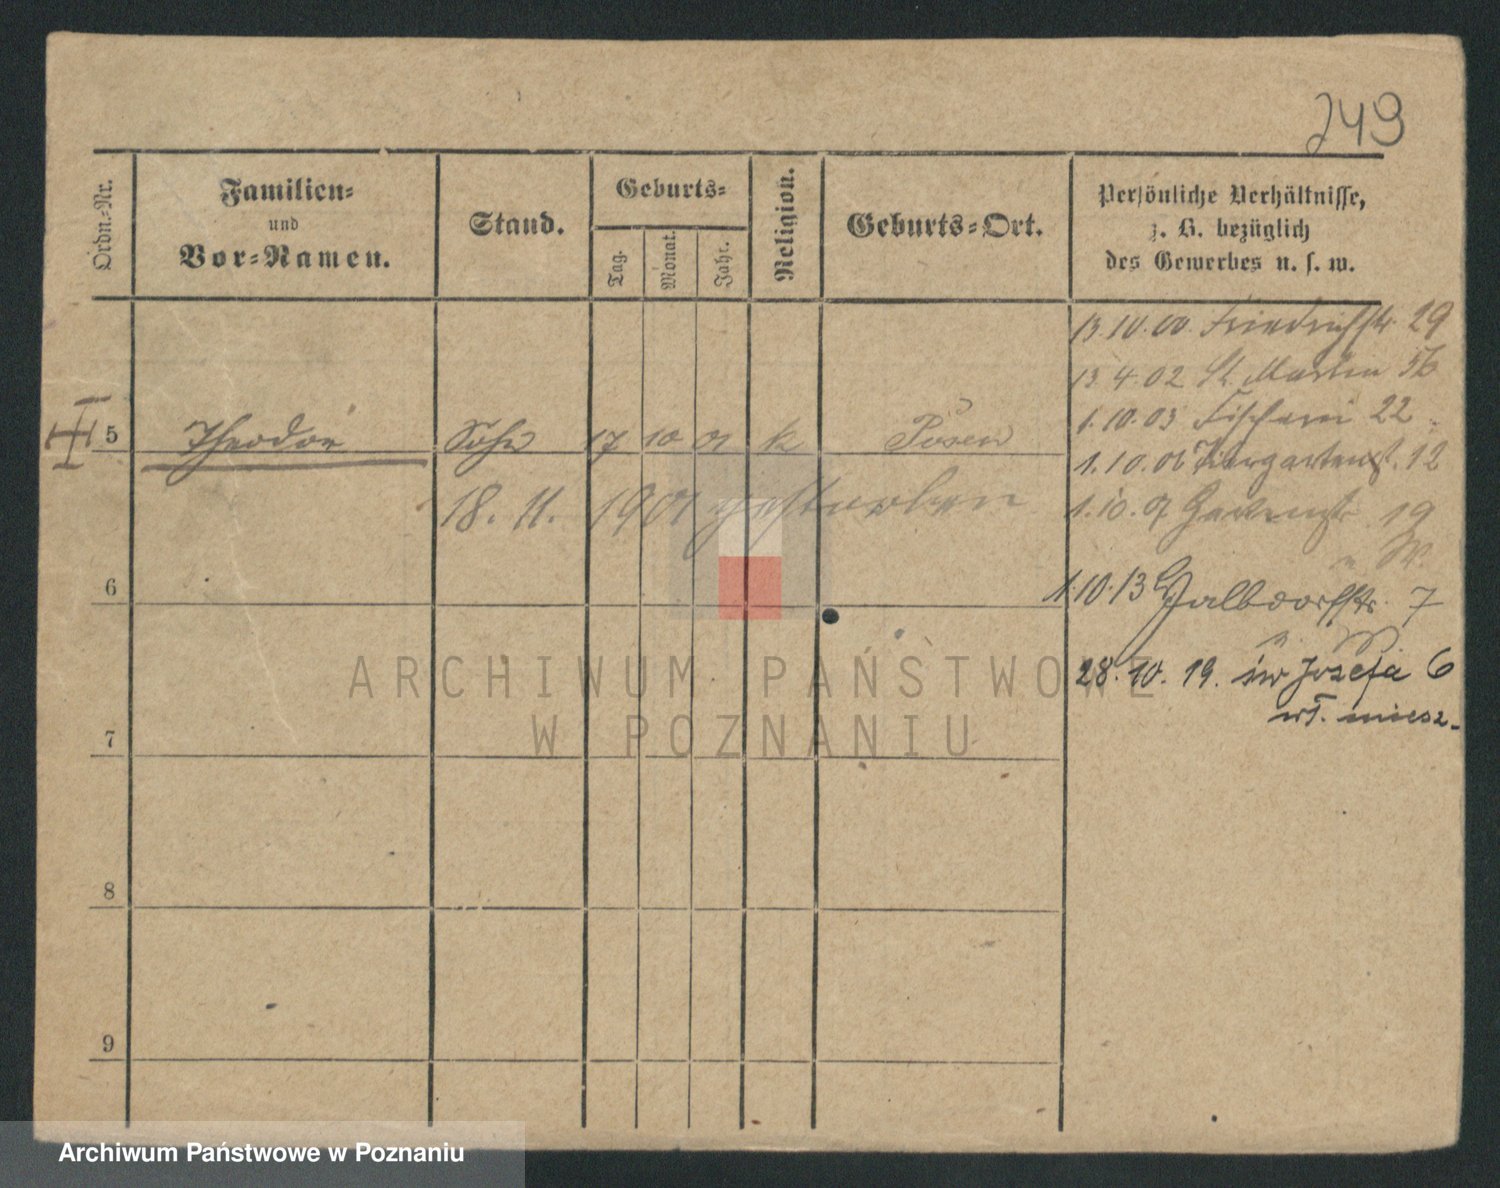 249
Ordn.-Nr.
Familien-
und
Vor-Namen.
Stand.
Geburts-
Tag.
Monat.
Jahr.
Religion.
Geburts-Ort.
Persönliche Verhältnisse,
z. B. bezüglich
des Gewerbes u. s. w.
13.10.00. Friedrichstr. 29
13.4.02 St. Martin 56
1.10.03 Fischerei 22
5 Theodor Sohn 17 10 01 k Posen
1.10.06 Tiergartenst. 12
18. 11. 1901 gestorben
1.10.07 19
6
1.10.13 7
28.10.19. św Józefa 6
wł. miesz.
7
8
9
ARCHIWUM PAŃSTWOWE
W POZNANIU
Archiwum Państwowe w Poznaniu